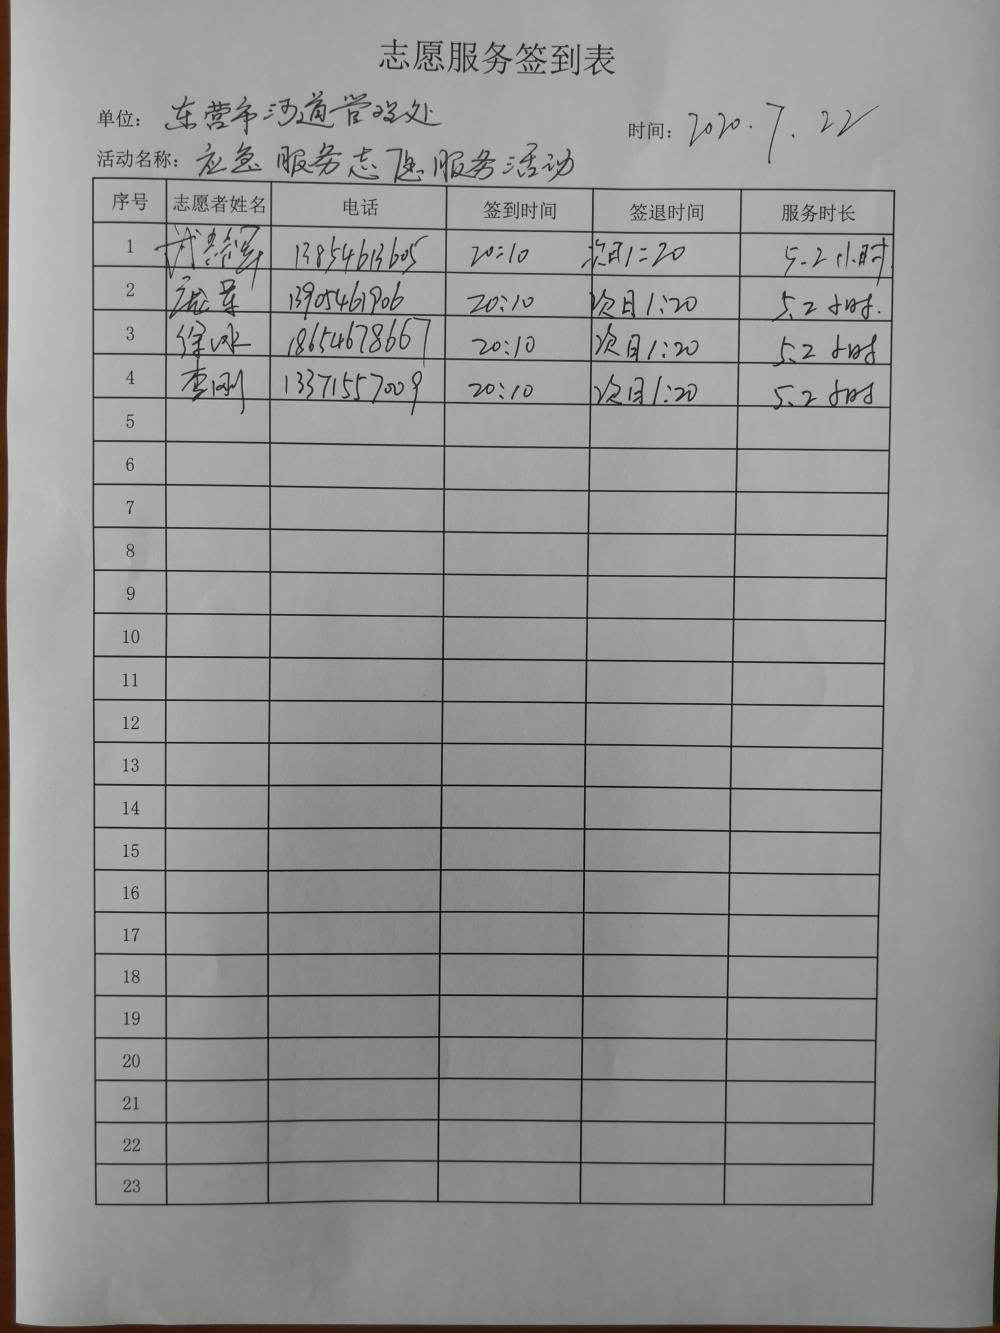 志愿服务签到表
单位: 东营市河道管理处
时间: 2020.7.22
活动名称: 应急服务志愿服务活动
序号 志愿者姓名 电话 签到时间 签退时间 服务时长
1 13854613605 20:10 次日1:20 5.2小时
2 13905461906 20:10 次日1:20 5.2小时.
3 徐冰 18654678667 20:10 次日1:20 5.2小时
4 李刚 13371557009 20:10 次日1:20 5.2小时
5
6
7
8
9
10
11
12
13
14
15
16
17
18
19
20
21
22
23